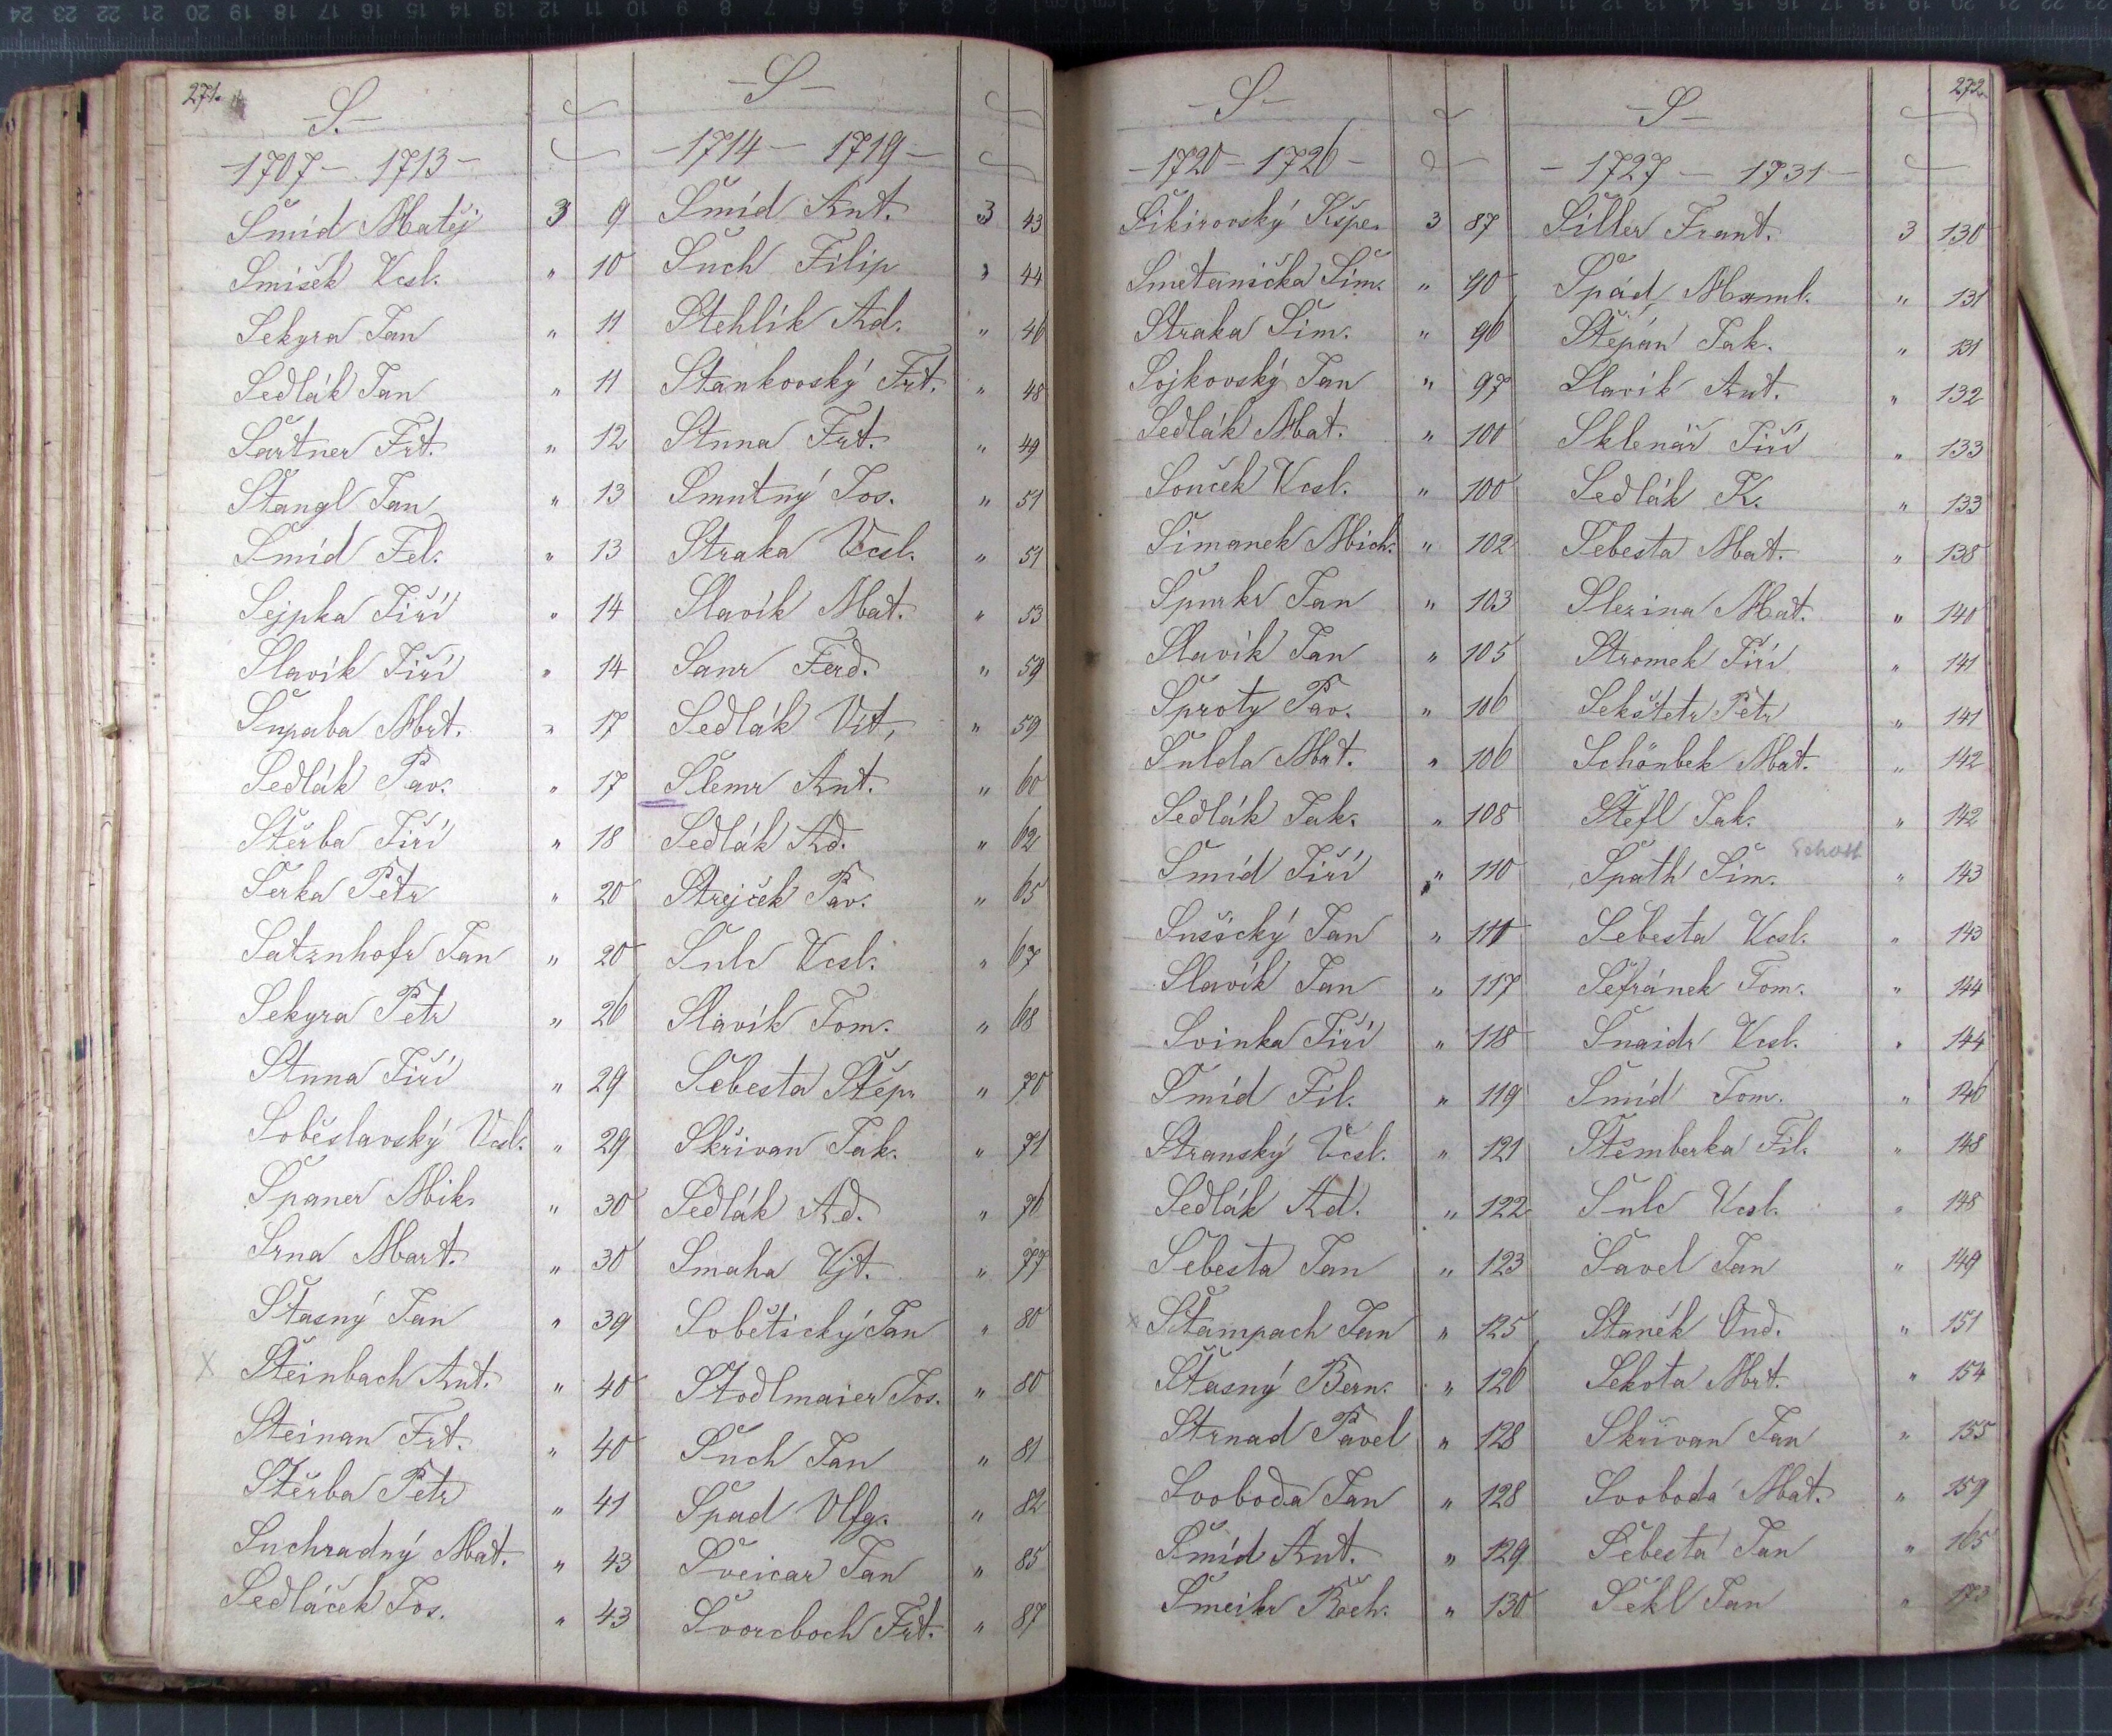 271.
-S.-
-1707- 1713-
Šmíd Matěj 3 9
Smíšek Vcsl. " 10
Sekyra Jan " 11
Sedlák Jan " 11
Šartner Frt. " 12
Štangl Jan " 13
Šmíd Fel. " 13
Sejpka Jiří " 14
Slavík Jiří " 14
Šupaba Mrt. " 17
Sedlák Pav. " 17
Štěrba Jiří " 18
Šerka Petr " 20
Satznhofr Jan " 20
Sekyra Petr " 26
Stuna Jiří " 29
Soběslavský Vcsl. " 29
Španer Mik. " 30
Srna Mart. " 30
Šťasný Jan " 39
x Šteinbach Ant. " 40
Steinau Frt. " 40
Štěrba Petr " 41
Suchradný Mat. " 43
Sedláček Jos. " 43
-S-
-1714- 1719-
Šmíd Ant. 3 43
Šuch Filip " 44
Stehlík Ad. " 46
Stankovský Frt. " 48
Stuna Frt. " 49
Smutný Jos. " 51
Straka Vcsl. " 51
Slavík Mat. " 53
Saur Ferd. " 59
Sedlák Vít, " 59
Šlemr Ant. " 60
Sedlák Ad. " 62
Strejček Pav. " 65
Šulc Vcsl. " 67
Slavík Tom. " 68
Šebesta Štěp. " 70
Skřivan Jak. " 71
Sedlák Ad. " 76
Smaha Vjt. " 77
Sobětický Jan " 80
Stodlmaier Jos. " 80
Šuch Jan " 81
Špad Vlfg. " 82
Šveicar Jan " 85
Švorcboch Frt. " 87
-S-
-1720- 1726-
Šikirovský Kšper 3 87
Smetanička Šim. " 90
Straka Šim. " 96
Sojkovský Jan " 97
Sedlák Mat. " 100
Souček Vcsl. " 100
Šimanek Mich. " 102
Špurkr Jan " 103
Slavík Jan " 105
Šproty Pav. " 106
Šulda Mat. " 106
Sedlák Jak. " 108
Šmíd Jiří " 110
Sušický Jan " 111
Slavík Jan " 117
Svinka Jiří " 118
Šmíd Fil. " 119
Stranský Vcsl. " 121
Sedlák Ad. " 122
Šebesta Jan " 123
x Štampach Jan " 125
Šťasný Bern. " 126
Strnad Pavel " 128
Svoboda Jan " 128
Šmíd Ant. " 129
Šmeikr Rch. " 130
272.
-S-
-1727- 1731-
Šiller Frant. 3 130
Špád Maml. " 131
Štěpán Jak. " 131
Slavík Ant. " 132
Sklenář Jiří " 133
Sedlák K. " 133
Šebesta Mat. " 138
Slezina Mat. " 140
Stromek Jiří " 141
Sekštetr Petr " 141
Schönbek Mat. " 142
Štefl Jak. " 142
Schott
Špath Šim. " 143
Šebesta Vcsl. " 143
Šefránek Tom. " 144
Šnaidr Vcsl. " 144
Šmíd Tom. " 146
Štemberka Fil. " 148
Šulc Vcsl. " 148
Šavel Jan " 149
Staněk Ond. " 151
Sekota Mrt. " 154
Skřivan Jan " 155
Svoboda Mat. " 159
Šebesta Jan " 165
Šekl Jan " 173